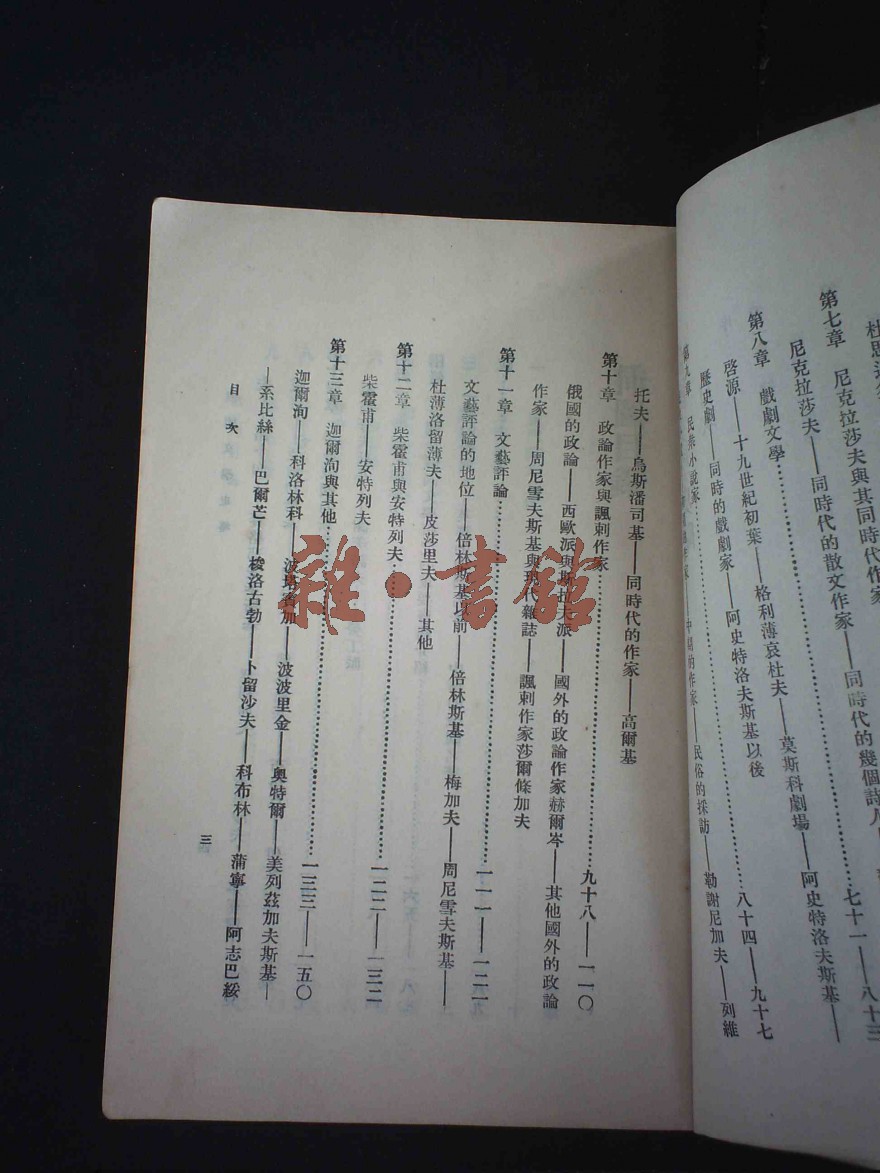 杜思
第七章　尼克拉莎夫與其同時代作家……七十一——八十三
尼克拉莎夫——同時代的散文作家——同時代的幾個詩人
第八章　戲劇文學……八十四——九十七
啓源——十九世紀初葉——格利薄哀杜夫——莫斯科劇場——阿史特洛夫斯基——
歷史劇——同時的戲劇家——阿史特洛夫斯基以後
第九章　民衆小說家
作家——民俗的採訪——勒謝尼加夫——列維
托夫——烏斯潘司基——同時代的作家——高爾基
第十章　政論作家與諷刺作家……九十八——一一〇
俄國的政論——西歐派與斯拉夫派——國外的政論作家赫爾岑——其他國外的政論
作家——周尼雪夫斯基與現代雜誌——諷刺作家莎爾條加夫
第十一章　文藝評論……一一一——一二一
文藝評論的地位——倍林斯基以前——倍林斯基——梅加夫——周尼雪夫斯基——
杜薄洛留薄夫——皮莎里夫——其他
第十二章　柴霍甫與安特列夫……一二二——一三二
柴霍甫——安特列夫
第十三章　迦爾洵與其他……一三三——一五〇
迦爾洵——科洛林科——波塔賓加——波波里金——奧特爾——美列茲加夫斯基—
—系比絲——巴爾芒——梭洛古勃——卜留沙夫——科布林——蒲寧——阿志巴綏
目次
三
雜·書館